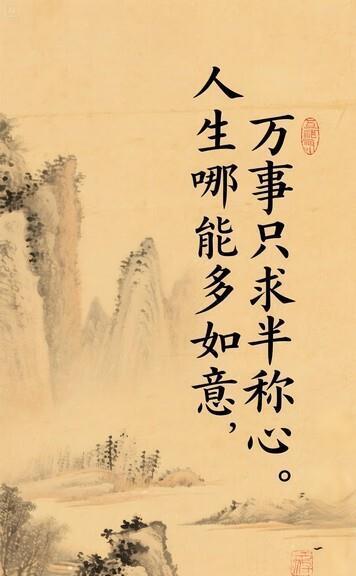 人生哪能多如意，
万事只求半称心。